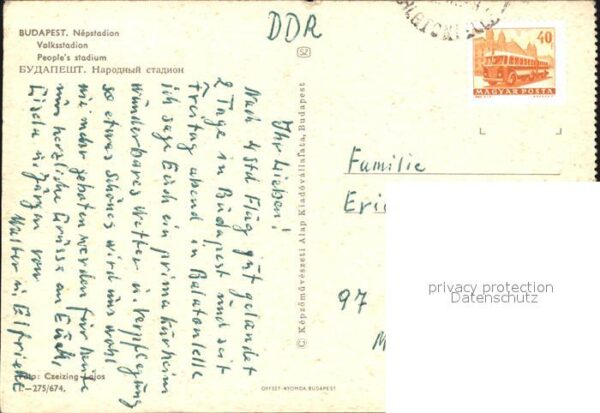 BUDAPEST. Népstadion
Volksstadion
People's stadium
БУДАПЕШТ. Народный стадион
DDR
40
MAGYAR POSTA
SZ
Ihr Lieben!
Nach 4 Std Flug gut gelandet
2 Tage in Budapest und seit
Freitag abend in Balatonlelle
ich sage Euch ein prima Kurheim
wunderbares Wetter u. Verpflegung
so etwas Schönes wird uns wohl
nie mehr geboten werden für heute
nur herzliche Grüsse an Euch,
u. Jürgen von
Walter u. Elfriede
© Képzőművészeti Alap Kiadóvállalata, Budapest
Familie
Eric
97
M
privacy protection
Datenschutz
Foto: Czeizing Lajos
1.—275/674.
OFFSET-NYOMDA BUDAPEST